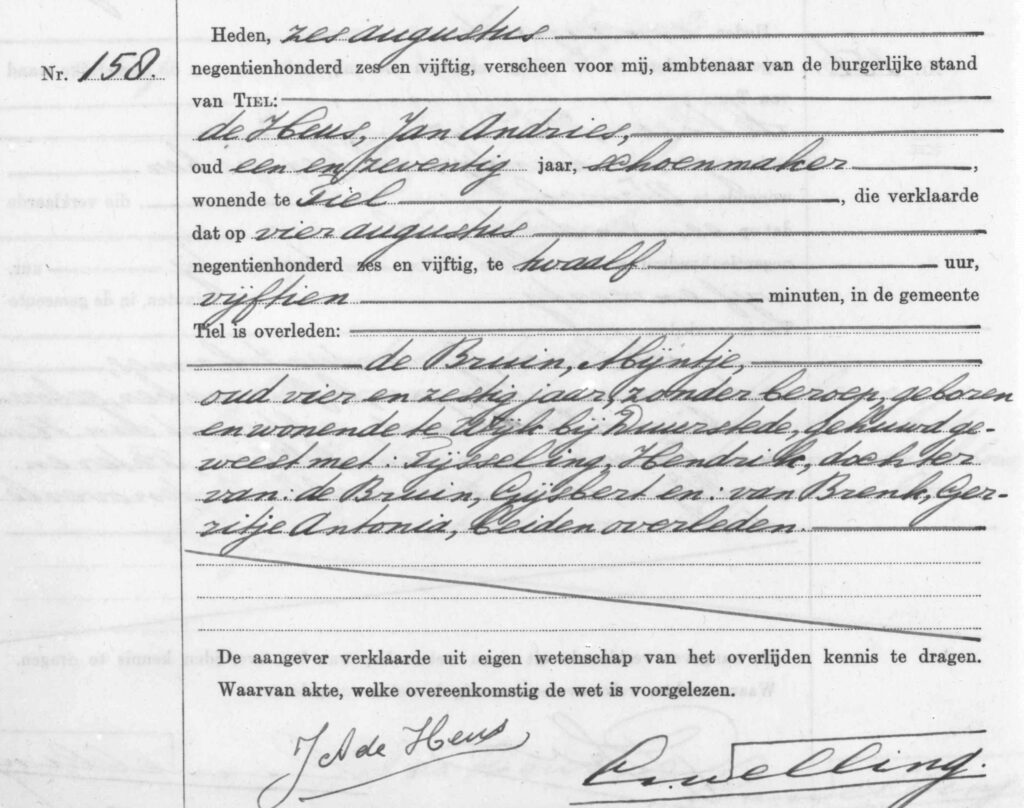 Heden, zes augustus
Nr. 158.
negentienhonderd zes en vijftig, verscheen voor mij, ambtenaar van de burgerlijke stand
van TIEL:
de Heus, Jan Andries,
oud een en zeventig jaar, schoenmaker,
wonende te Tiel, die verklaarde
dat op vier augustus
negentienhonderd zes en vijftig, te twaalf uur,
vijftien minuten, in de gemeente
Tiel is overleden:
de Bruin, Mijntje,
oud vier en zestig jaar, zonder beroep, geboren
en wonende te Wijk bij Duurstede, gehuwd ge-
weest met: Tijsseling, Hendrik, dochter
van: de Bruin, Gijsbert en: van Brenk, Ger-
ritje Antonia, beiden overleden
De aangever verklaarde uit eigen wetenschap van het overlijden kennis te dragen.
Waarvan akte, welke overeenkomstig de wet is voorgelezen.
J A de Heus